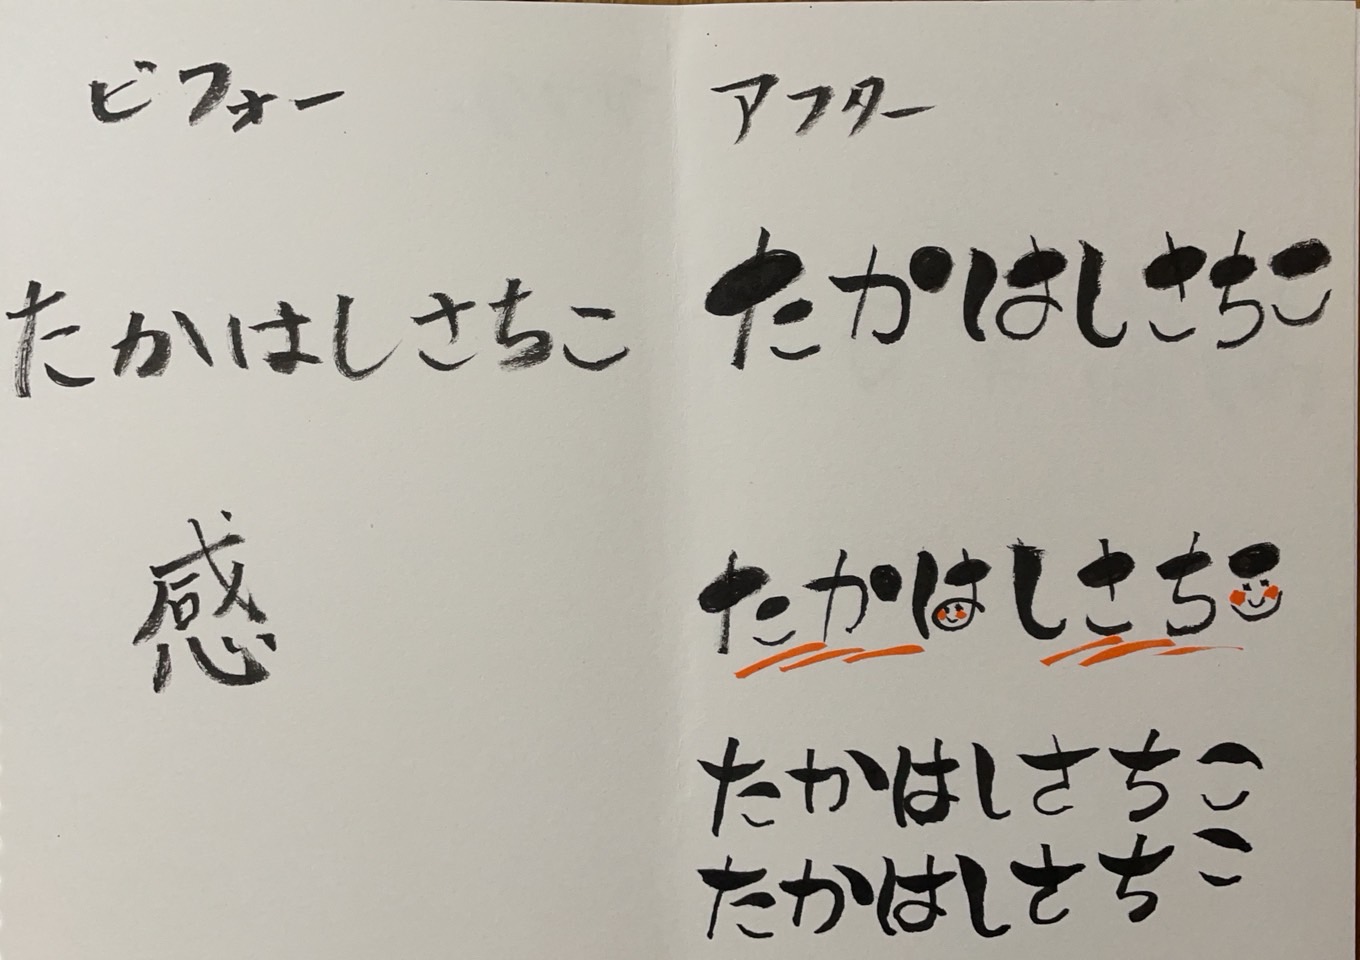 ビフォー
たかはしさちこ
感
アフター
たかはしさちこ
たかはしさちこ
たかはしさちこ
たかはしさちこ